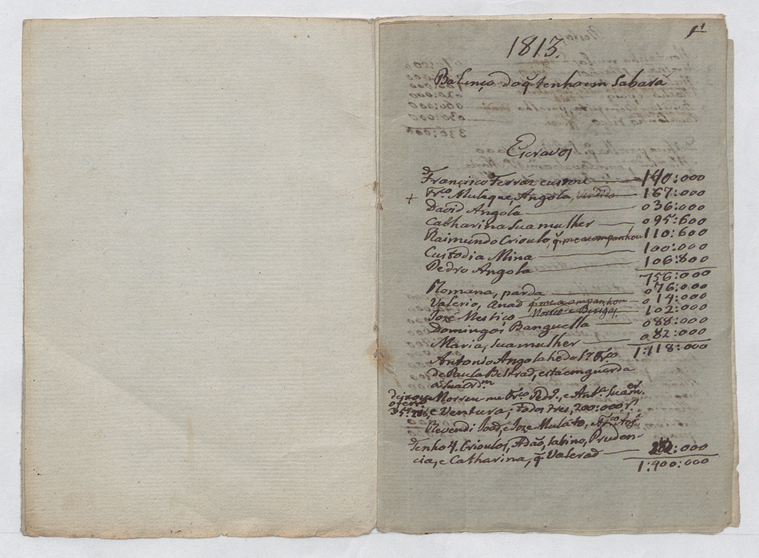 1813.
Balanço do q̃ tenho em Sabará
Escravos
Francisco Ferraz custou 140:000
+ Fr.co Muleque, Angola, vendido 167:000
David Angola 036:000
Catharina Sua mulher 095:600
Raimundo Crioulo, q̃ me acompanhou 110:600
Custodia Mina 100:000
Pedro Angola 106:800
756:000
Romana, parda 076:000
Valerio, q̃ me acompanhou 014:000
José Mestiço 102:000
Domingos Banguella 088:000
Maria, sua mulher 082:000
1:118:000
Antonio Angola he do
de Paula Beltrad, está em guarda
a sua
Morreu me Fr.co e Ant.a
e Ventura; todos tres, 200:000 r.s
Revendi João, e Joze Mulato,
Tenho 4 Crioulos, Adão, Sabino, Pruden
cia, e Catharina, q̃ Valerad 282:000
1:400:000